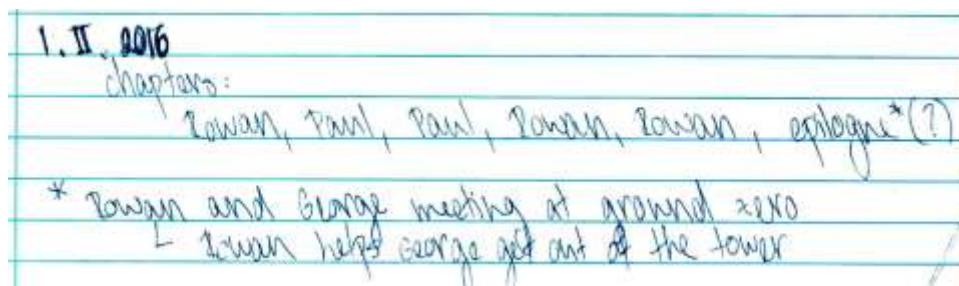 1. II. 2016
chapters:
Rowan, Paul, Paul, Rowan, Rowan, epilogue*(?)
* Rowan and George meeting at ground zero
└ Rowan helps George get out of the tower